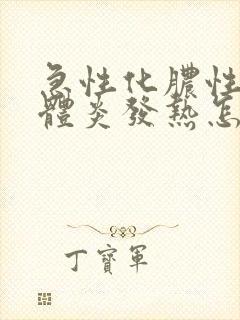 急性化膿性
體炎發熱怎
丁寶軍